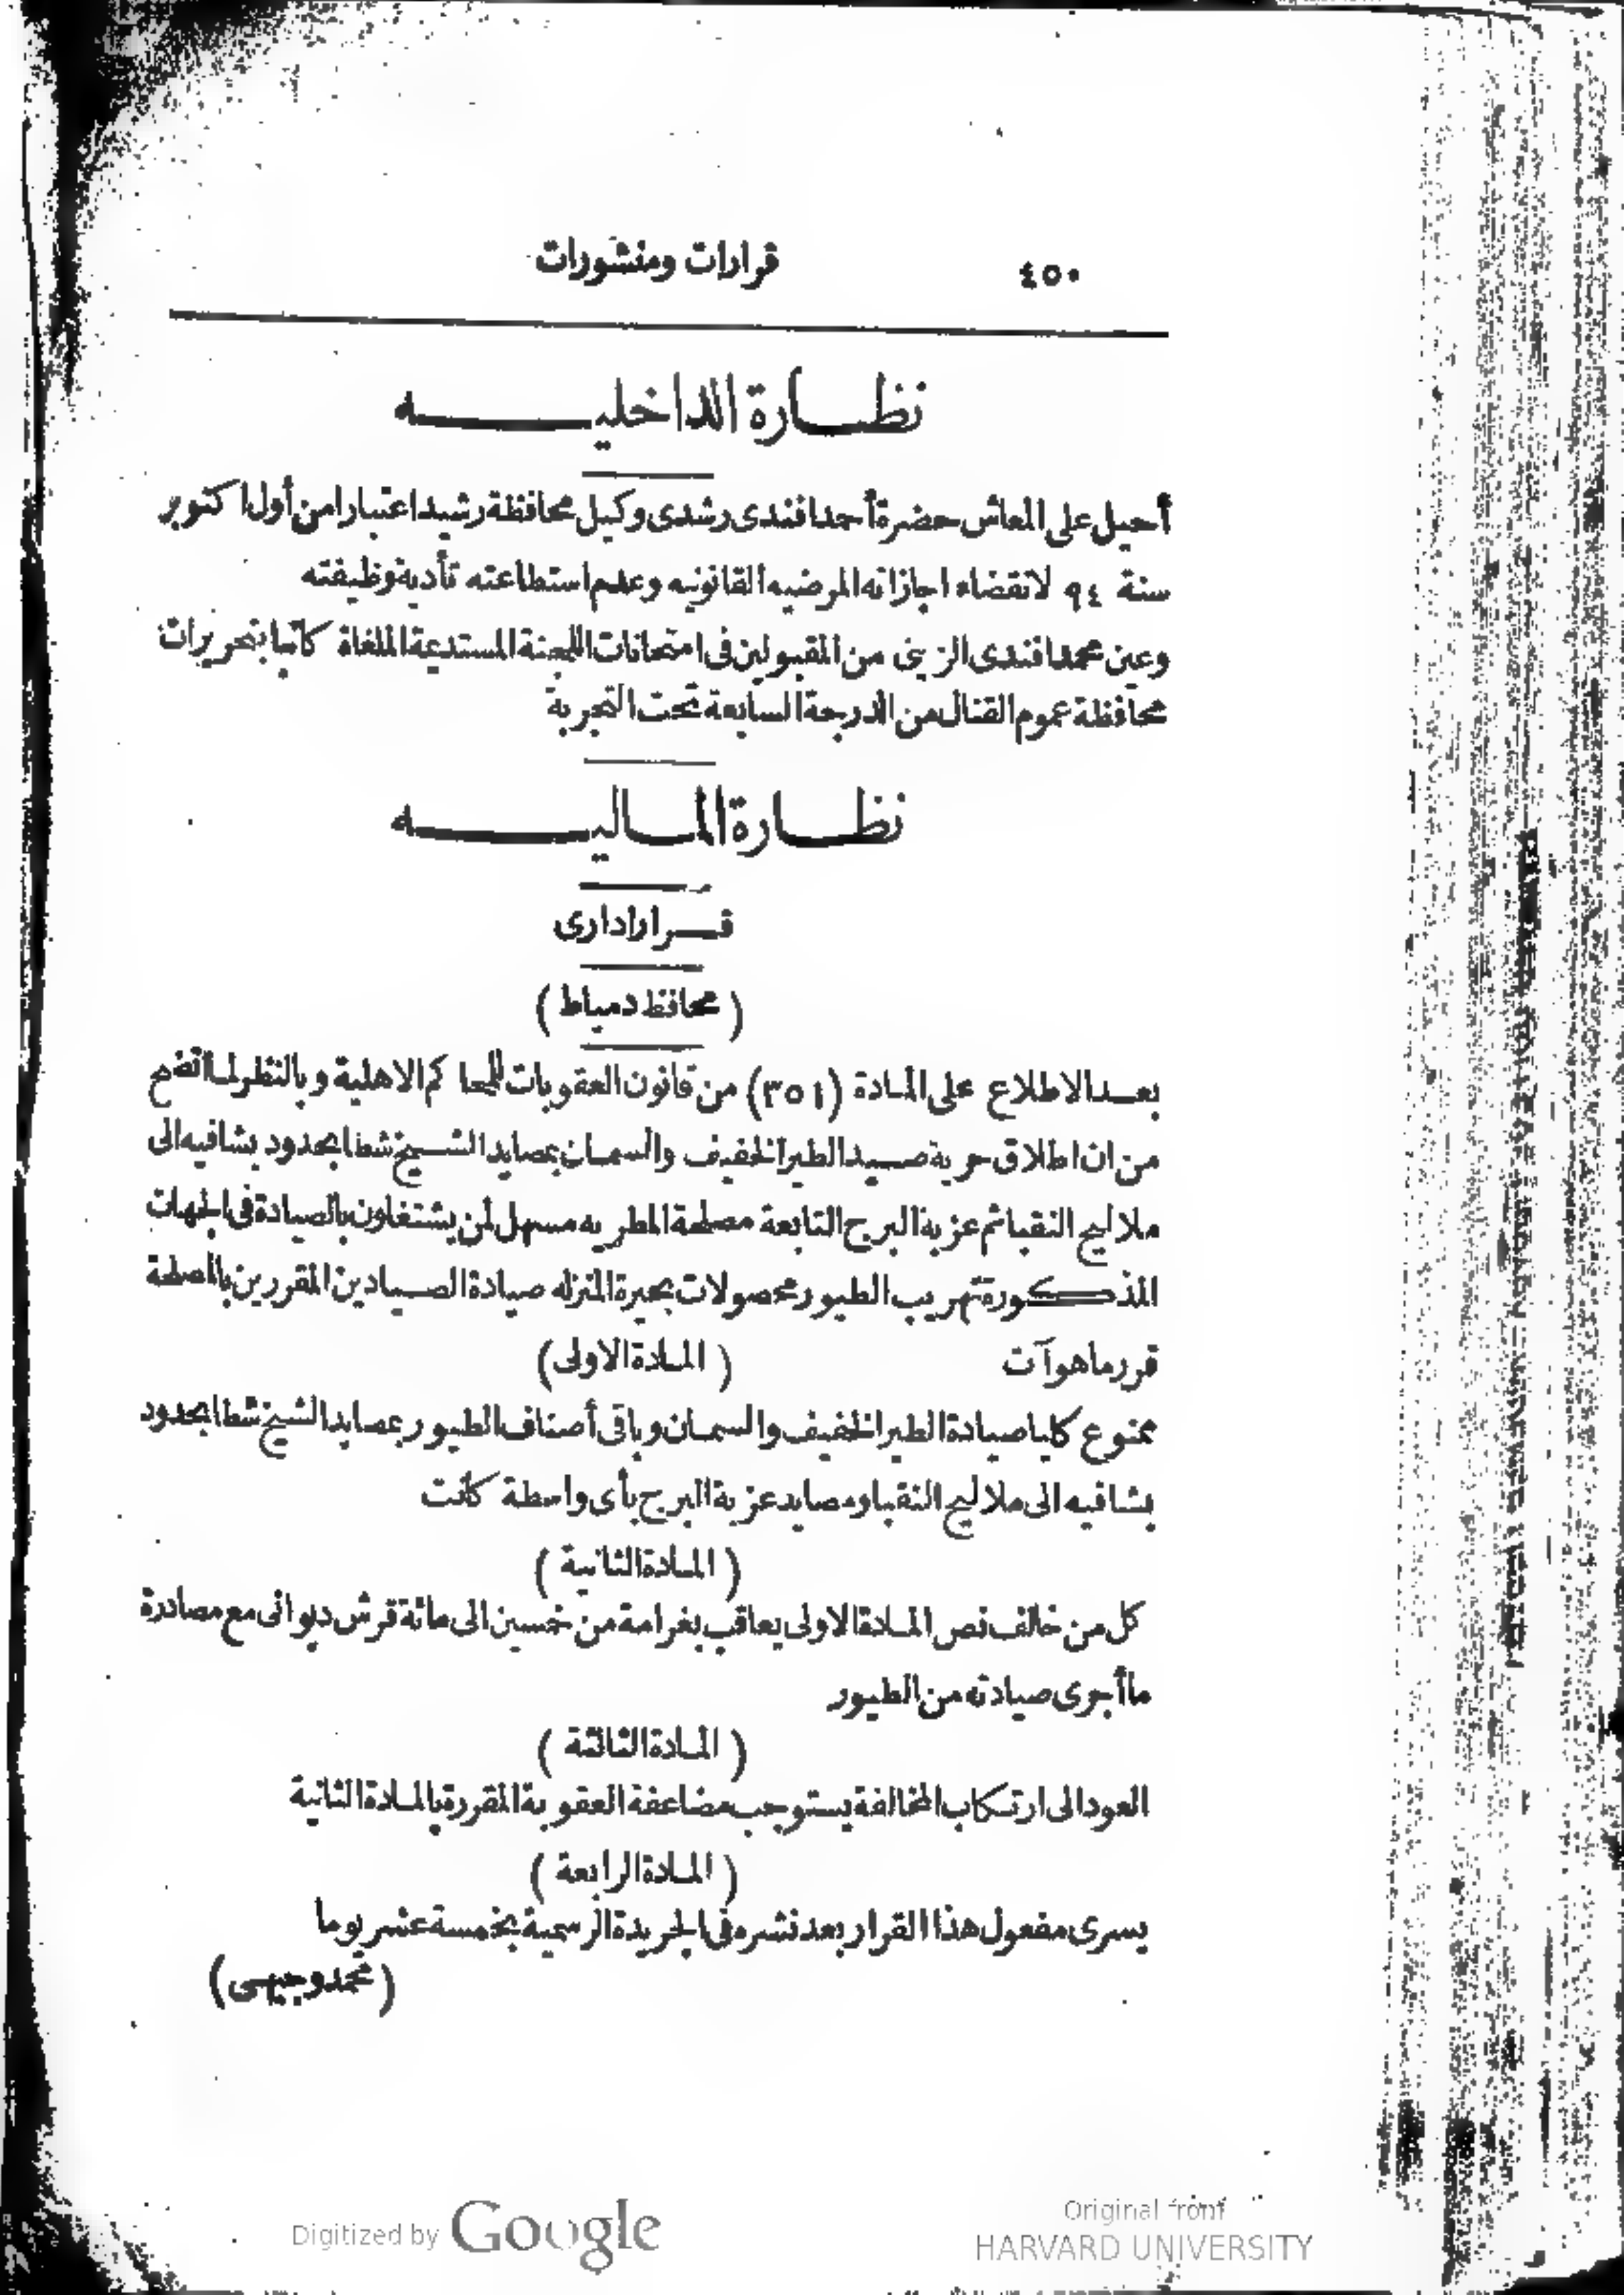 ٤٥٠ قرارات ومنشورات
نظارة الداخليه
أحيل على المعاش حضرة أحمد افندى رشدى وكيل محافظة رشيد اعتبارا من أول اكتوبر
سنة ٩٤ لانقضاء اجازاته المرضيه القانونيه وعدم استطاعته تأدية وظيفته
وعين محمد افندى الزينى من المقبولين فى امتحانات اللجنة المستديمة الملغاة كاتبا بتحريرات
محافظة عموم القنال من الدرجة السابعة تحت التجربة
نظارة الماليه
قرار ادارى
(محافظ دمياط)
بعد الاطلاع على المادة (٣٥١) من قانون العقوبات للمحاكم الاهلية وبالنظر لما اتضح
من ان اطلاق حرية صيد الطير الخفيف والسمان بمصايد الشيخ شطا بحدود بشافيه الى
ملاليح النقبا ثم عزبة البرج التابعة مصلحة المطريه مسهل لمن يشتغلون بالصيادة فى الجهات
المذكورة تهريب الطيور محصولات بحيرة المنزله صيادة الصيادين المقررين بالمصلحة
قرر ما هو آت (المادة الاولى)
ممنوع كليا صيادة الطير الخفيف والسمان وباقى أصناف الطيور بمصايد الشيخ شطا بحدود
بشافيه الى ملاليح النقبا ومصايد عزبة البرج بأى واسطة كانت
(المادة الثانية)
كل من خالف نص المادة الاولى يعاقب بغرامة من خمسين الى مائة قرش ديوانى مع مصادرة
ما أجرى صيادته من الطيور
(المادة الثالثة)
العود الى ارتكاب المخالفة يستوجب مضاعفة العقوبة المقررة بالمادة الثانية
(المادة الرابعة)
يسرى مفعول هذا القرار بعد نشره فى الجريدة الرسمية بخمسة عشر يوما
(محمد وجيهى)
Digitized by Google
Original from
HARVARD UNIVERSITY